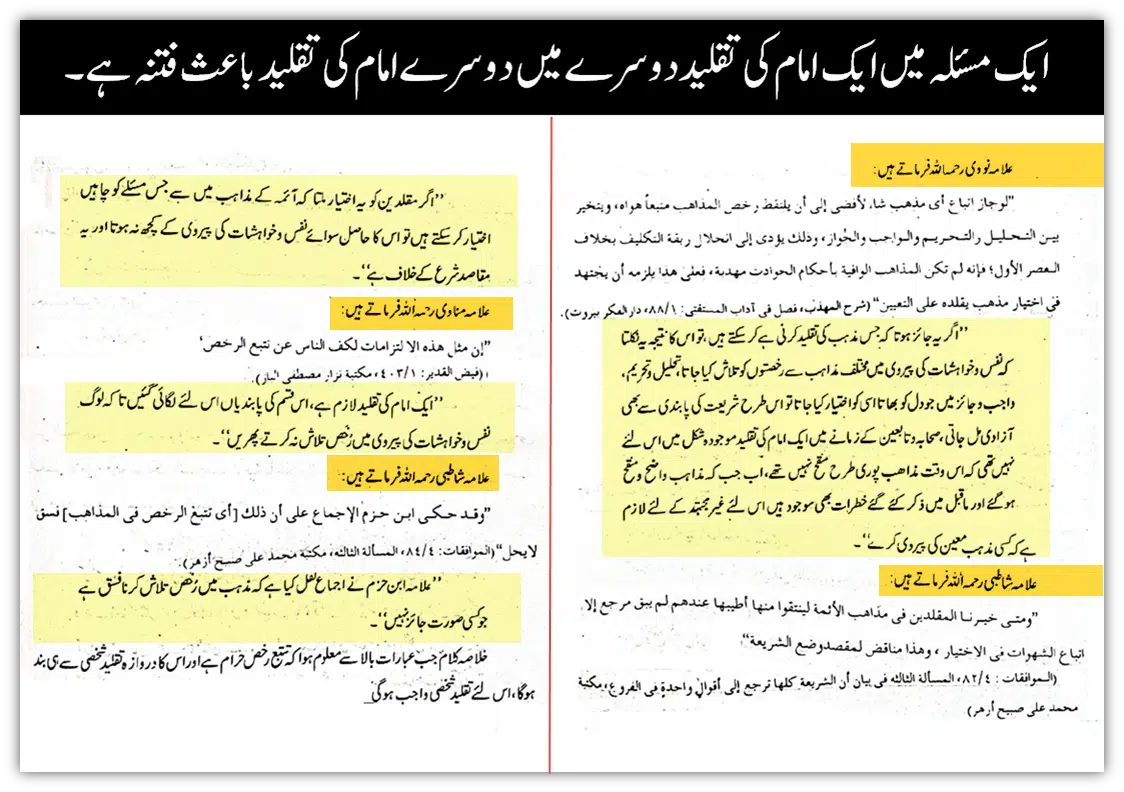 ایک مسئلہ میں ایک امام کی تقلید دوسرے میں دوسرے امام کی تقلید باعث فتنہ ہے۔
علامہ نووی رحمہ اللہ فرماتے ہیں:
”لوجاز اتباع أی مذهب شاء لأفضی إلی أن یلتقط رخص المذاهب متبعاً هواه، ویتخیر
بین التحلیل والتحریم والواجب والجواز، وذلك یؤدی إلی انحلال ربقة التکلیف بخلاف
العصر الأول؛ فإنه لم تکن المذاهب الوافیة بأحکام الحوادث مهدبة، فعلی هذا یلزمه أن یجتهد
فی اختیار مذهب یقلده علی التعیین“ (شرح المهذب، فصل فی آداب المستفتی: ۸۸/۱، دار الفکر بیروت).
”اگر یہ جائز ہوتا کہ جس مذہب کی تقلید کرنی ہے کر سکتے ہیں، تو اس کا نتیجہ یہ نکلتا
کہ نفس و خواہشات کی پیروی میں مختلف مذاہب سے رخصتوں کو تلاش کیا جاتا، تحلیل و تحریم،
واجب و جائز میں جو دل کو بھاتا اسی کو اختیار کیا جاتا تو اس طرح شریعت کی پابندی سے بھی
آزادی مل جاتی، صحابہ و تابعین کے زمانے میں ایک امام کی تقلید موجودہ شکل میں اس لئے
نہیں تھی کہ اس وقت مذاھب پوری طرح منقح نہیں تھے، اب جب کہ مذاہب واضح و منقح
ہو گئے اور ماقبل میں ذکر کئے گئے خطرات بھی موجود ہیں اس لئے غیر مجتہد کے لئے لازم
ہے کہ کسی مذہب معین کی پیروی کرے“۔
علامہ شاطبی رحمہ اللہ فرماتے ہیں:
”ومتی خیرنا المقلدین فی مذاهب الأئمة لینتقوا منها أطیبها عندهم لم یبق مرجع إلا
اتباع الشهوات فی الاختیار، وهذا مناقض لمقصد وضع الشریعة“
(الموافقات: ۸۲/۴، المسألة الثالثه فی بیان أن الشریعة کلها ترجع إلی أقوال واحدة فی الفروع، مکتبة
محمد علی صبیح أزهر)
”اگر مقلدین کو یہ اختیار ملتا کہ آئمہ کے مذاہب میں سے جس مسئلے کو چاہیں
اختیار کر سکتے ہیں تو اس کا حاصل سوائے نفس و خواہشات کی پیروی کے کچھ نہ ہوتا اور یہ
مقاصد شرع کے خلاف ہے“۔
علامہ مناوی رحمہ اللہ فرماتے ہیں:
”إن مثل هذه الالتزامات لکف الناس عن تتبع الرخص‘
(فیض القدیر: ۴۰۳/۱، مکتبة نزار مصطفی الباز).
”ایک امام کی تقلید لازم ہے، اس قسم کی پابندیاں اس لئے لگائی گئیں تا کہ لوگ
نفس و خواہشات کی پیروی میں رُخص تلاش نہ کرتے پھریں“۔
علامہ شاطبی رحمہ اللہ فرماتے ہیں:
”وقد حکی ابن حزم الإجماع علی أن ذلك [أی تتبع الرخص فی المذاهب] فسق
لایحل“ (الموافقات: ۸۴/۴، المسألة الثالثه، مکتبة محمد علی صبیح أزهر).
”علامہ ابن حزم نے اجماع نقل کیا ہے کہ مذہب میں رُخص تلاش کرنا فسق ہے
جو کسی صورت جائز نہیں“۔
خلاصہ کلام جب عبارات بالا سے معلوم ہوا کہ تتبع رخص حرام ہے اور اس کا دروازہ تقلید شخصی سے ہی بند
ہوگا، اس لئے تقلید شخصی واجب ہوگی